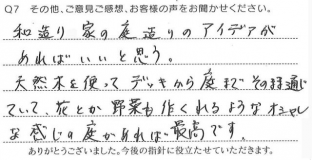 Q7 その他、ご意見ご感想、お客様の声をお聞かせください。
和造り家の庭造りのアイデアが
あればいいと思う。
天然木を使ってデッキから庭までその時通じ
ていて、花とか野菜も作くれるようなオシャレ
な感じの庭があれば最高です。
ありがとうございました。今後の指針に役立たせていただきます。